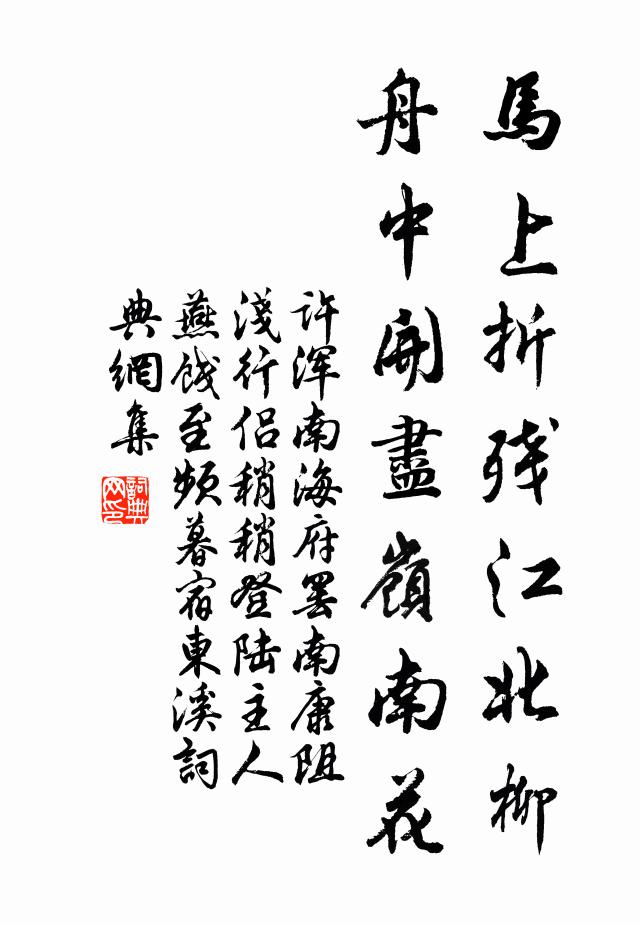 馬上折殘江北柳
舟中開盡嶺南花
許渾南海府罷南康阻
淺行侶稍稍登陸主人
燕餞至頻暮宿東溪詞
典網集
詞典
网印